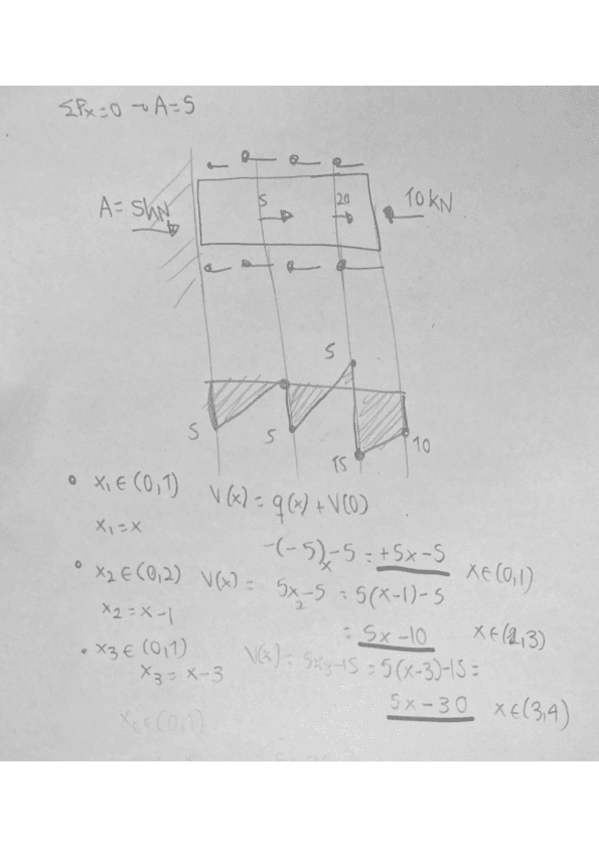 ΣPx=0 → A=5
A= 5kN
5
20
10 kN
5
5
5
15
10
• x₁ ∈ (0,1) V(x) = q(x) + V(0)
x₁=x
-(-5)x-5 = +5x-5 x∈(0,1)
• x₂ ∈ (0,2) V(x) = 5x₂-5 = 5(x-1)-5
x₂ = x-1
= 5x-10 x∈(1,3)
• x₃ ∈ (0,1) V(x) = 5x₃-15 = 5(x-3)-15 =
x₃ = x-3
5x-30 x∈(3,4)